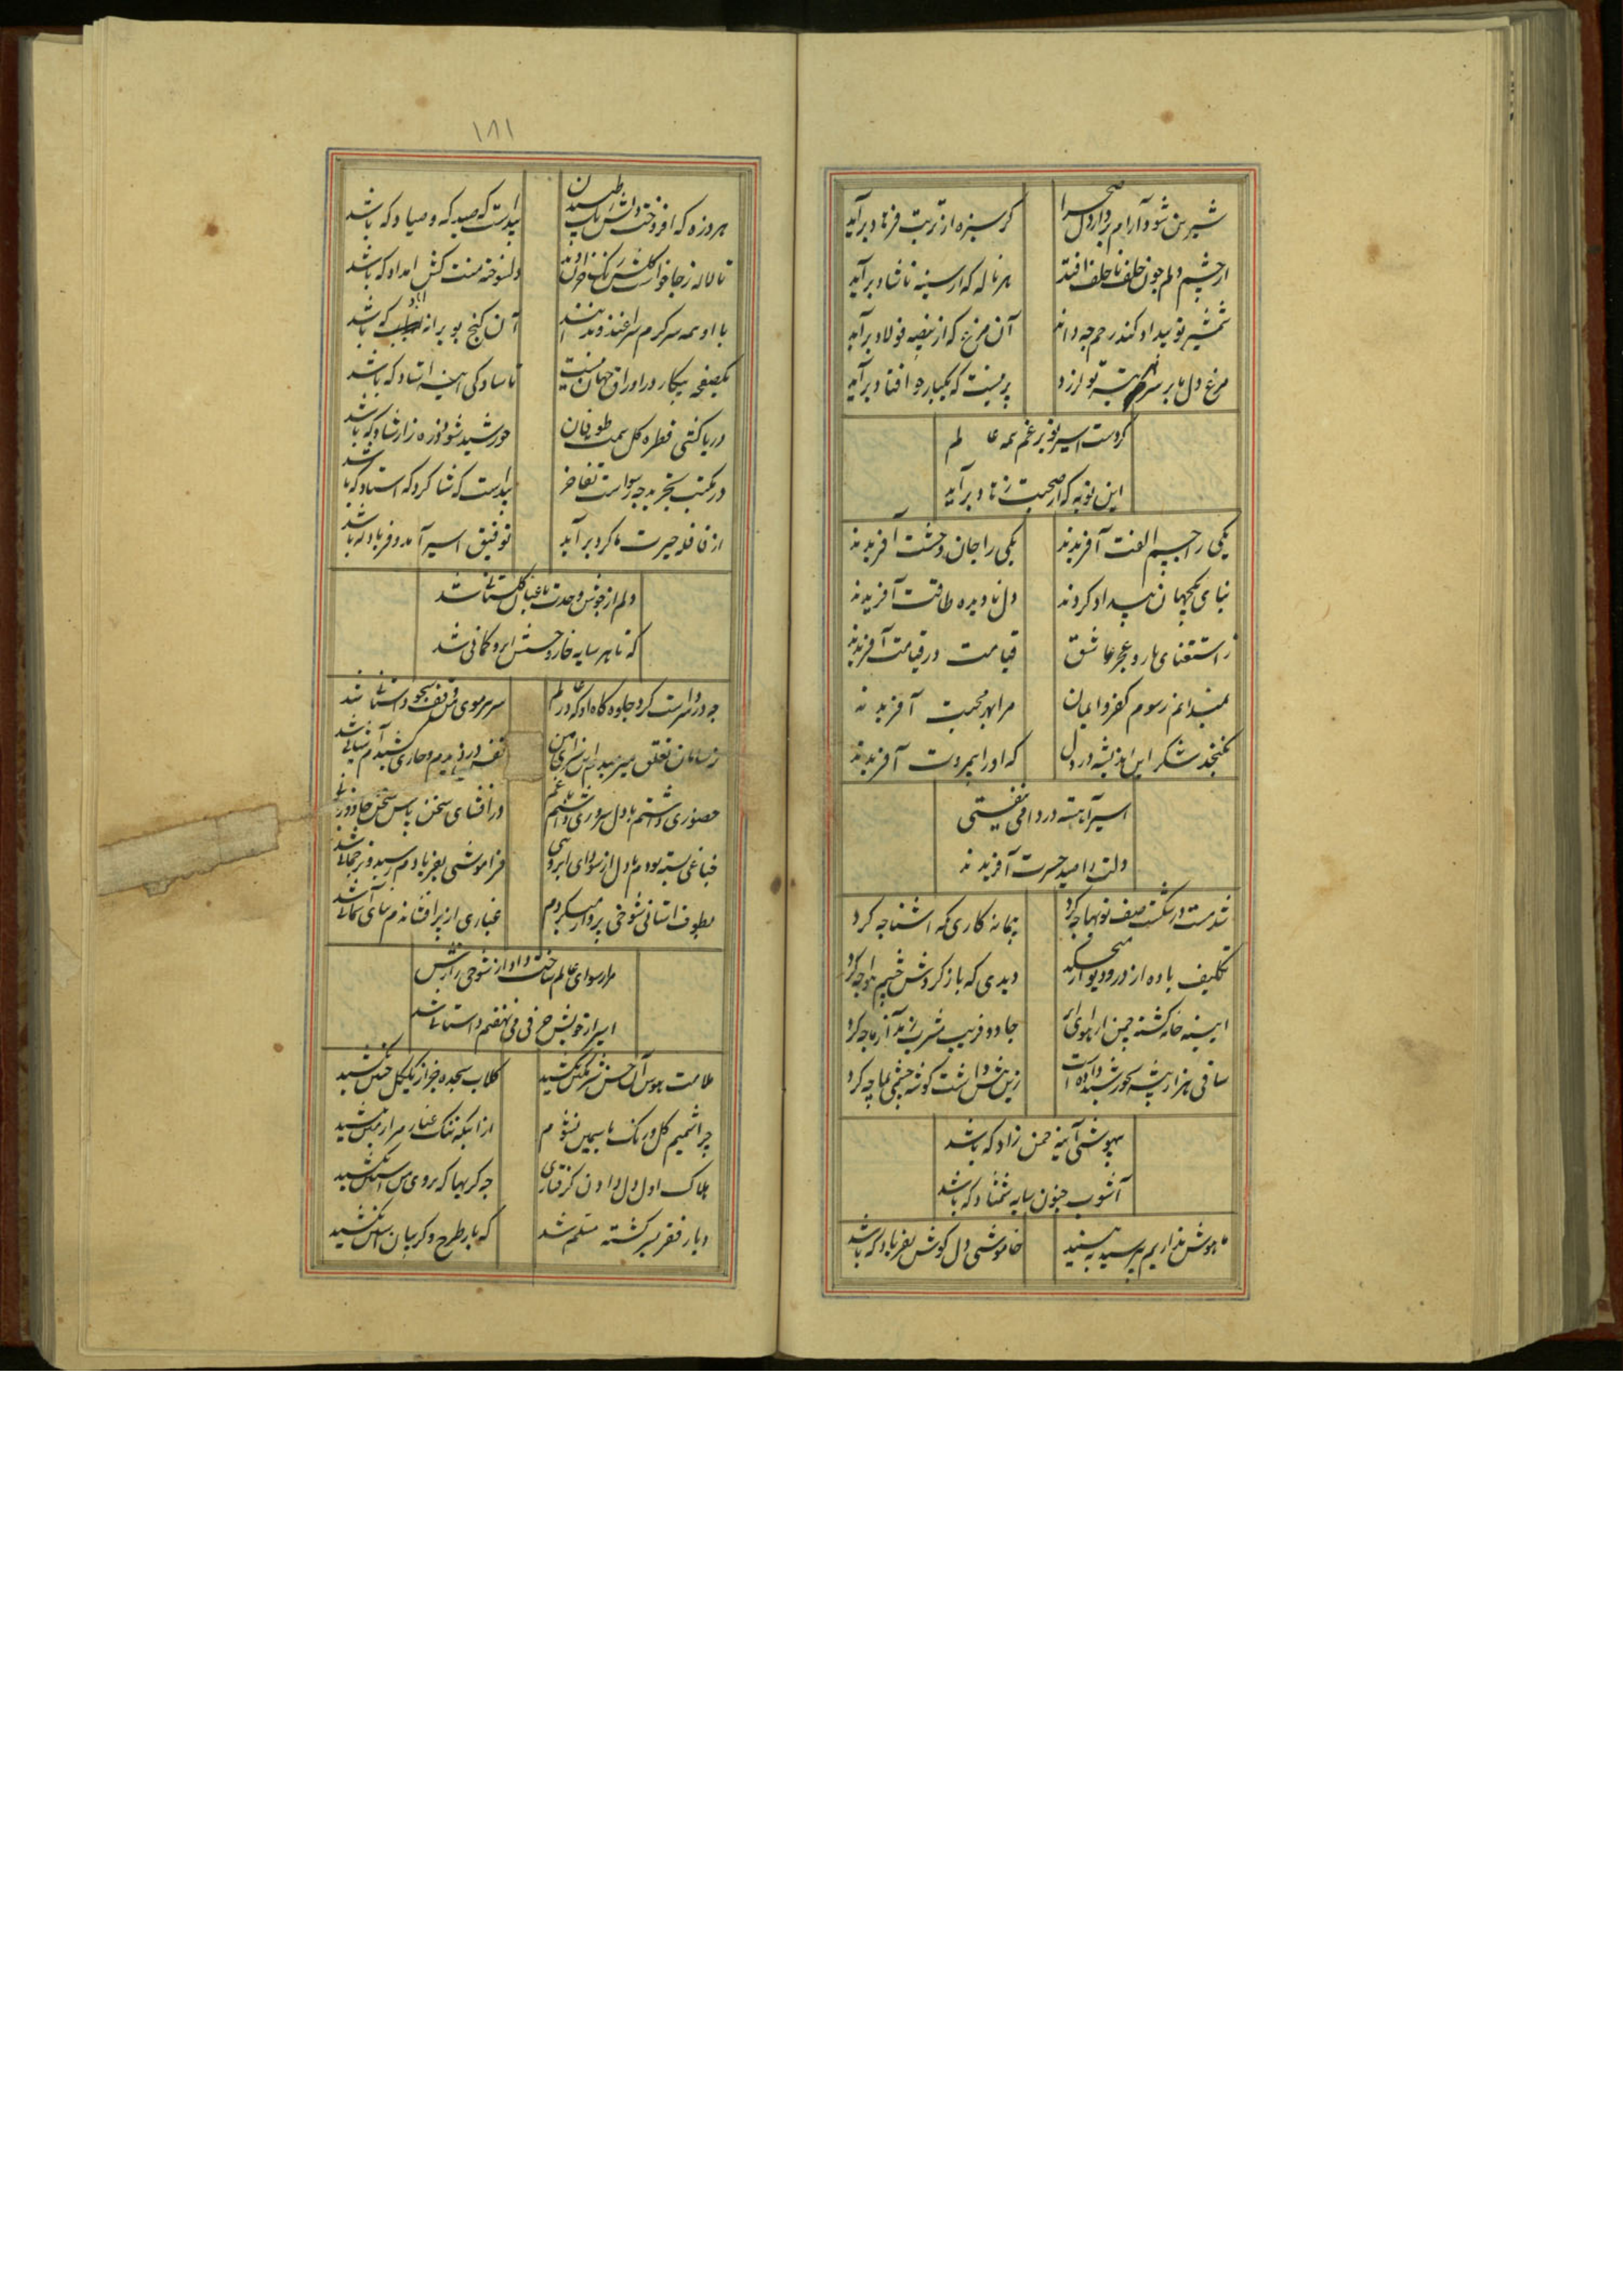 شیرین شود آرام بردار دل صحرا
گر سبزه از تربت فرهاد برآید
از چشم دلم چون خلف ناخلف افتد
هر ناله که از سینه ناشاد برآید
شمشیر تو بیداد کند رحم چه داند
آن مرغ که از بیضه فولاد برآید
مرغ دل ما بر سر تو لرزد
پر نیست که یکباره افتاد برآید
کردست اسیر تو بر غم همه عالم
این توبه که از صحبت زهاد برآید
یکی را چشم الفت آفریدند
یکی را جان وحشت آفریدند
بنای یکجهان بیداد کردند
دل نادیده طاقت آفریدند
ز استغنای یار و عجز عاشق
قیامت در قیامت آفریدند
نمیدانم رسوم کفر و ایمان
مرا بهر محبت آفریدند
نگنجد شکر این اندیشه در دل
که او را بیمروت آفریدند
اسیر آهسته درد افی نیستی
دلت را صید حسرت آفریدند
شد مست در شکست صف توبها چه کرد
پیمانه کاری که اشنا چه کرد
تکلیف باده از در و دیوار میچکد
دیدی که باز گردش چشم هوا چه کرد
ایینه خانه گشته چمن از هوای ابر
جادو فریب مشرب زهد آزما چه کرد
ساقی هزار شیشه بخورشید داده است
زین بیش داشت گوشه چشمی بما چه کرد
بیهوشی آینه حسن زاد که باشد
آشوب جنون سایه شمشاد که باشد
ما هوش نداریم بپرسید ببینید
خاموشی دل گوش بفریاد که باشد
١٨١
هر ذره که افروخت دلش را طپیدن
پیداست که صید که و صیاد که باشد
تا لاله ز جا خواست گلش رنگ خزان
دلسوخته منت کش امداد که باشد
با او همه سرگرم سرافرازند
آن گنج بویرانه آباد که باشد
یکصفحه بیکار در اوراق جهان نیست
تا سادگی اینه استاد که باشد
دریا کشتی قطره گل سمت طوفان
خورشید شو ذره زار شاد که باشد
در مکتب تجرید چه رسواست تفاخر
پیداست که شاگرد که استاد که باشد
از قافله حیرت ما گرد برآید
توفیق اسیر آمد و فریاد که باشد
دلم از جوش وحدت باغبان گلستانی شد
که تا هر سایه خار و خسش ابرو کمانی شد
چه در سر داشت کرد جلوه گاه او که در عالم
سر هر موی من وقف بیجو داستانی شد
ز سامان تعلق میرمیدم
نفس دزدیدم و خاری کشیدم آشیانی شد
حضوری داشتم با دل سروری داشتم با غم
در افشای سخن پاس سخن جادو زبانی شد
جناغی بسته بودم با دل از سودای ابروئی
فراموشی بفریادم رسید و ترجمانی شد
بطوف استانی شوخی پرواز میکردم
غباری از پر افشاندم بنای آسمانی شد
مرا رسوای عالم ساخت داد از شوخی رازش
اسیر از خویش حرفی می نهفتم داستانی شد
ملامت هوس آن حسن شرمگین نکشید
گلاب سجده جز از یک گل جبین نکشید
چرا شمیم گل و رنگ یاسمین نشوم
از اینکه ننگ غبار مرا زمین نکشید
هلاک اول دل دادن گرفتاری
چه گریها که بروی من آستین نکشید
دیار فقر بسر گشته مسلم شد
که بار طرح و گریبان آستین نکشید